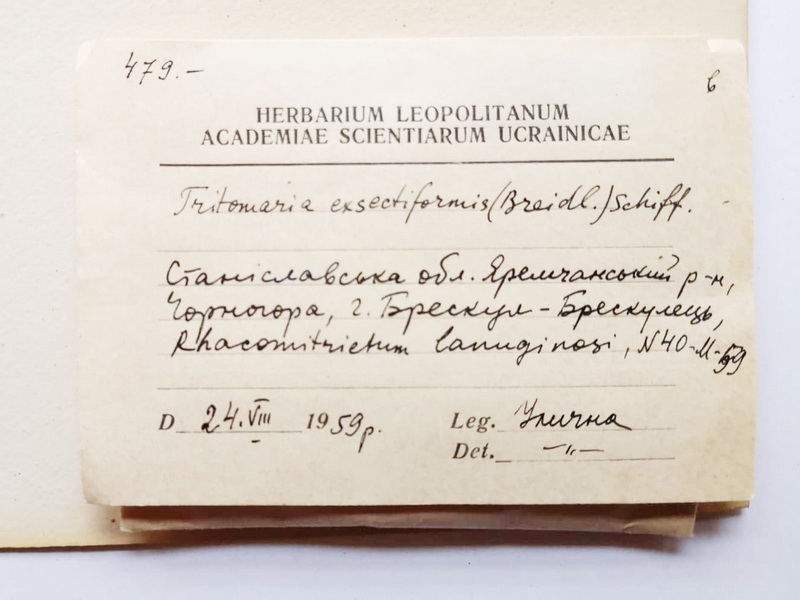 479.–
б
HERBARIUM LEOPOLITANUM
ACADEMIAE SCIENTIARUM UCRAINICAE
Tritomaria exsectiformis (Breidl.) Schiff.
Станіславська обл. Яремчанський р-н,
Чорногора, г. Брескул - Брескулець,
Rhacomitrietum lanuginosi, N40-М-59
D 24.VIII 1959р.
Leg. Улична
Det. —〃—